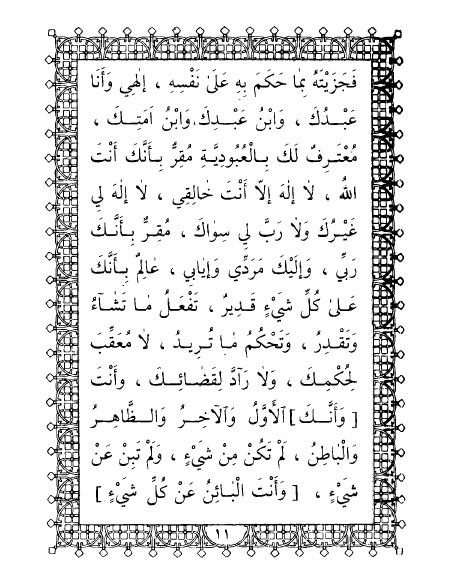 فَجَزَيْتَهُ بِمَا حَكَمَ بِهِ عَلَىٰ نَفْسِهِ ، إِلٰهِي وَأَنَا
عَبْدُكَ ، وَابْنُ عَبْدِكَ، وَابْنُ اَمَتِكَ ،
مُعْتَرِفٌ لَكَ بِالْعُبُودِيَّةِ مُقِرٌّ بِأَنَّكَ أَنْتَ
اللهُ ، لاٰ إِلٰهَ إِلاّ أَنْتَ خٰالِقِي ، لاٰ إِلٰهَ لِي
غَيْرُكَ وَلاٰ رَبَّ لِي سِوٰاكَ ، مُقِرٌّ بِأَنَّكَ
رَبِّي ، وَإِلَيْكَ مَرَدِّي وَإِيٰابِي ، عٰالِمٌ بِأَنَّكَ
عَلىٰ كُلِّ شَيْءٍ قَدِيرٌ ، تَفْعَلُ مٰا تَشٰآءُ
وَتَقْدِرُ ، وَتَحْكُمُ مٰا تُرِيدُ ، لاٰ مُعَقِّبَ
لِحُكْمِكَ ، وَلاٰ رَآدَّ لِقَضٰائِكَ ، وأَنْتَ
[ وَأَنَّكَ ] اَلأَوَّلُ وَالآخِرُ وَالظَّاهِرُ
وَالْبٰاطِنُ ، لَمْ تَكُنْ مِنْ شَيْءٍ ، وَلَمْ تَبِنْ عَنْ
شَيْءٍ ، [ وَأَنْتَ الْبٰائِنُ عَنْ كُلِّ شَيْءٍ ]
١١